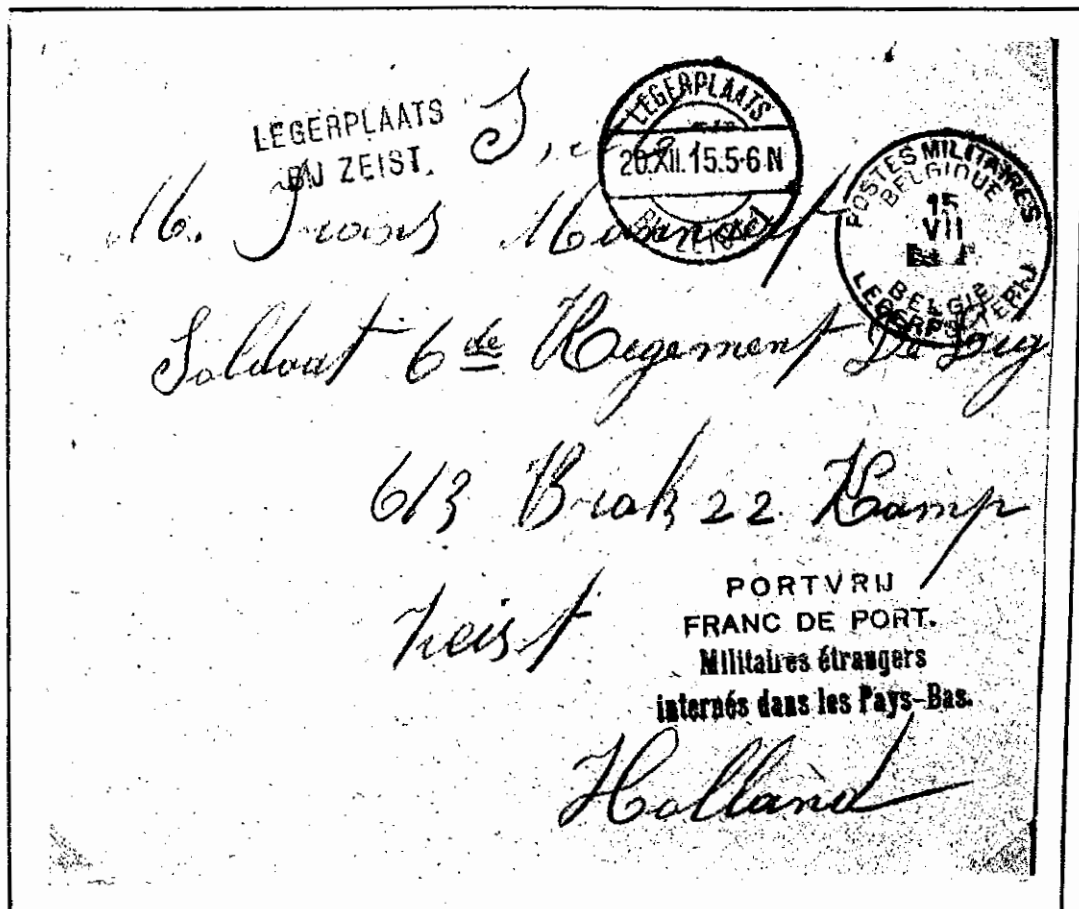 LEGERPLAATS
BIJ ZEIST.
LEGERPLAATS
20.XII.15.5-6 N
BIJ ZEIST
POSTES MILITAIRES
BELGIQUE
15
VII
BELGIË
LEGERPOSTERIJ
M. Frans
Soldaat 6de Regement De Lig
613 Brak 22. Kamp
Zeist
PORTVRIJ
FRANC DE PORT.
Militaires étrangers
internés dans les Pays-Bas.
Holland